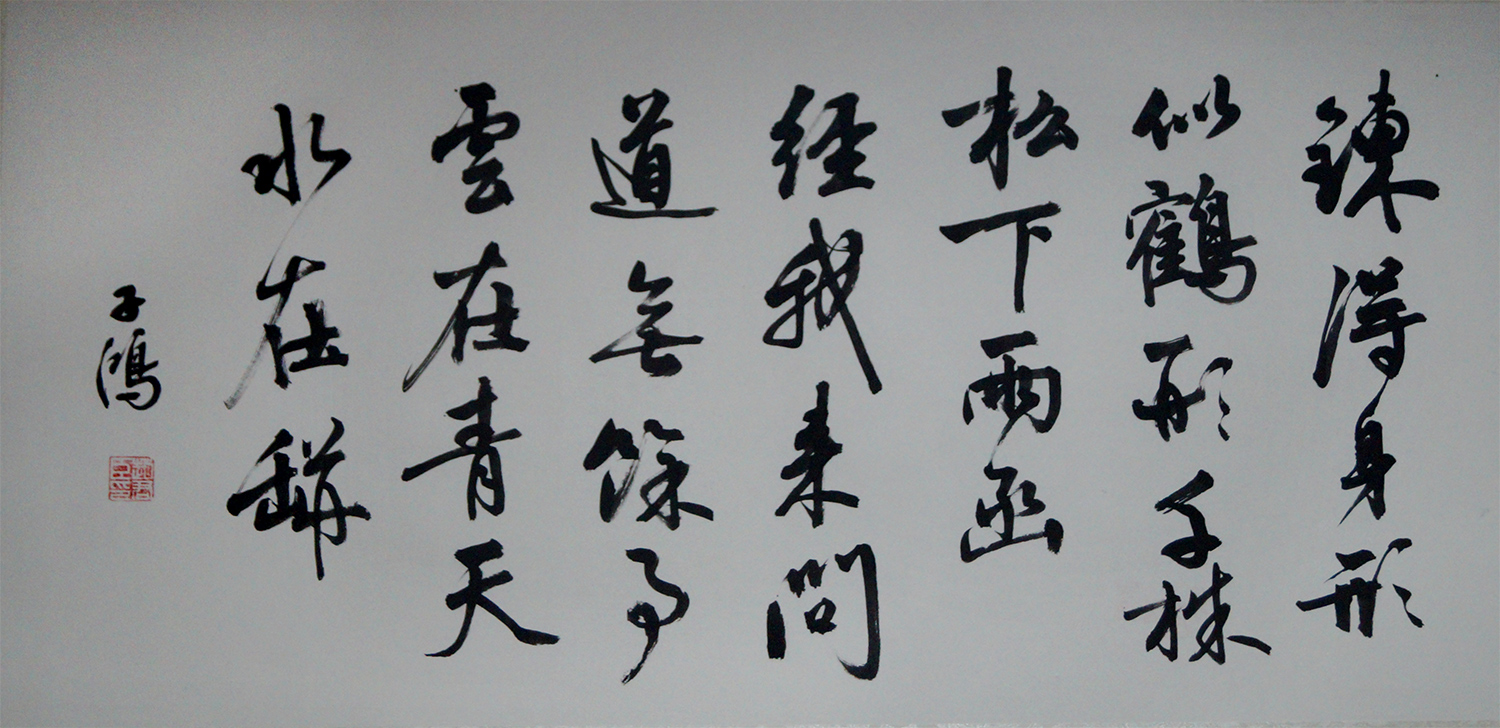 鍊得身形
似鶴形千株
松下兩函
經我来問
道無餘事
雲在青天
水在缾
子鴻